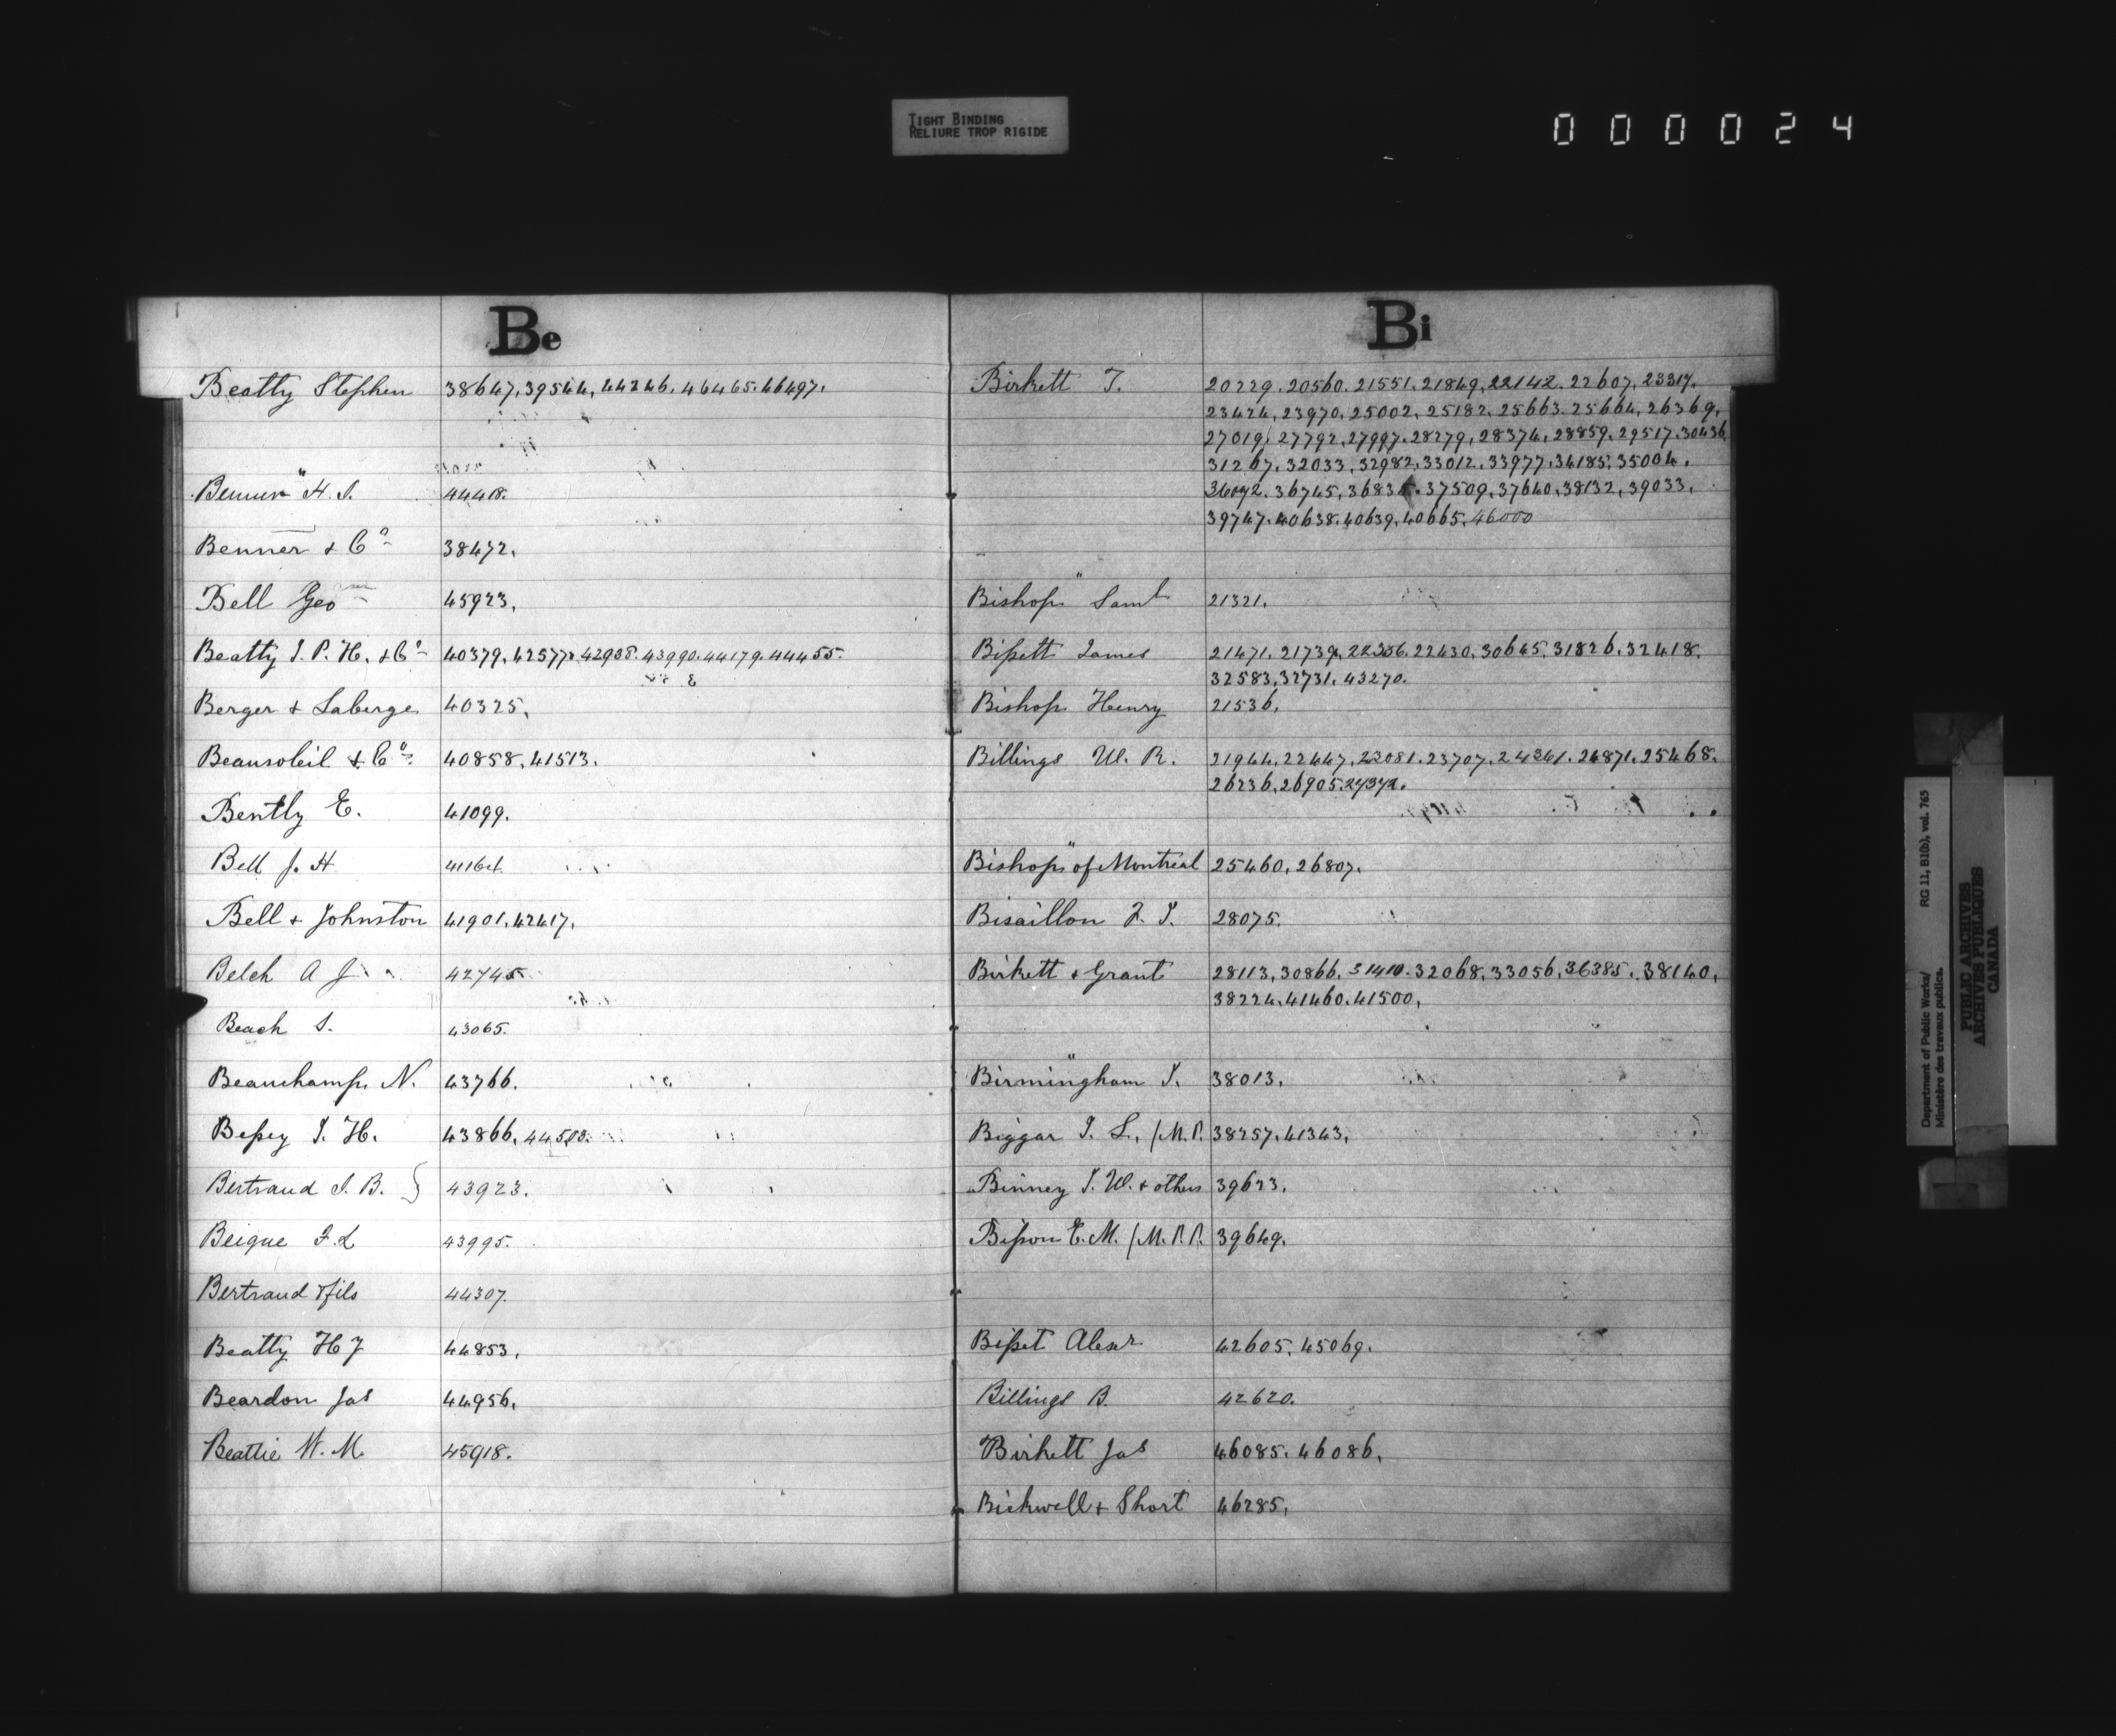 TIGHT BINDING
RELIURE TROP RIGIDE
000024
Be
Beatty Stephen 38647, 39544, 44246, 46465. 46497.
" H. S. 44418.
Benner & Co 38472.
Bell Geo 45923.
Beatty J. P. H. & Co 40379, 42577. 42938. 43990. 44179. 44455.
Berger & Laberge 40325.
Beausoleil & Co 40858, 41513.
Bently E. 41099.
Bell J. H 41164.
Bell & Johnston 41901, 42417.
Belch A J 42745
Beach S. 43065.
Beauchamp N. 43766.
Bessey J. H. 43866, 44503.
Bertrand J. B. } 43923.
Beique F. L 43995.
Bertrand & fils 44307.
Beatty H J 44853.
Beardon Jas 44956.
Beattie W. M. 45918.
Bi
Birkett T. 20229. 20560. 21551. 21849, 22142. 22607, 23317.
23424, 23970, 25002, 25182, 25663. 25664, 26369,
27019, 27792, 27997. 28279, 28374, 28859. 29517. 30436,
31267, 32033, 32982, 33012. 33977, 34185, 35004.
36092. 36745, 36835. 37509, 37640, 38132, 39033,
39747. 40638. 40639, 40665, 46000
Bishop " Saml 21321.
Bissett James 21471. 21739, 22356. 22430, 30645, 31826, 32418.
32583, 32731. 43270.
Bishop Henry 21536.
Billings W. R. 21944, 22447, 23081. 23707, 24361. 24871, 25468.
26236, 26905. 27372.
Bishop " of Montreal 25460, 26807.
Bisaillon F. J. 28075.
Birkett & Grant 28113, 30866, 31410. 32068, 33056, 36385. 38140,
38224, 41460. 41500,
Birmingham " J. 38013.
Biggar J. L. /M.P. 38257, 41343,
Binney J. W. & others 39623.
Bisson E. M. /M.P.P. 39649.
Bisset Alexr 42605, 45069.
Billings B. 42620.
Birkett Jas 46085. 46086,
Bickwell & Short 46285,
Department of Public Works/ RG 11, B1(b), vol. 765
Ministère des travaux publics.
PUBLIC ARCHIVES
ARCHIVES PUBLIQUES
CANADA